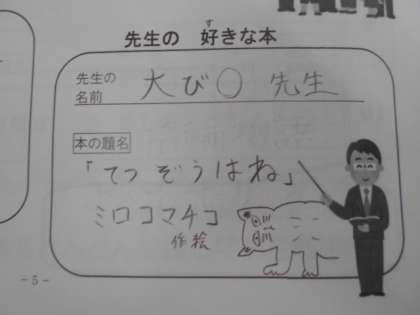 先生の 好きな本
す
先生の
名前
大び○ 先生
本の題名
「てつぞうはね」
ミロコマチコ
作絵
-5-